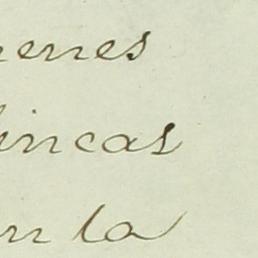 enes
fincas
en la